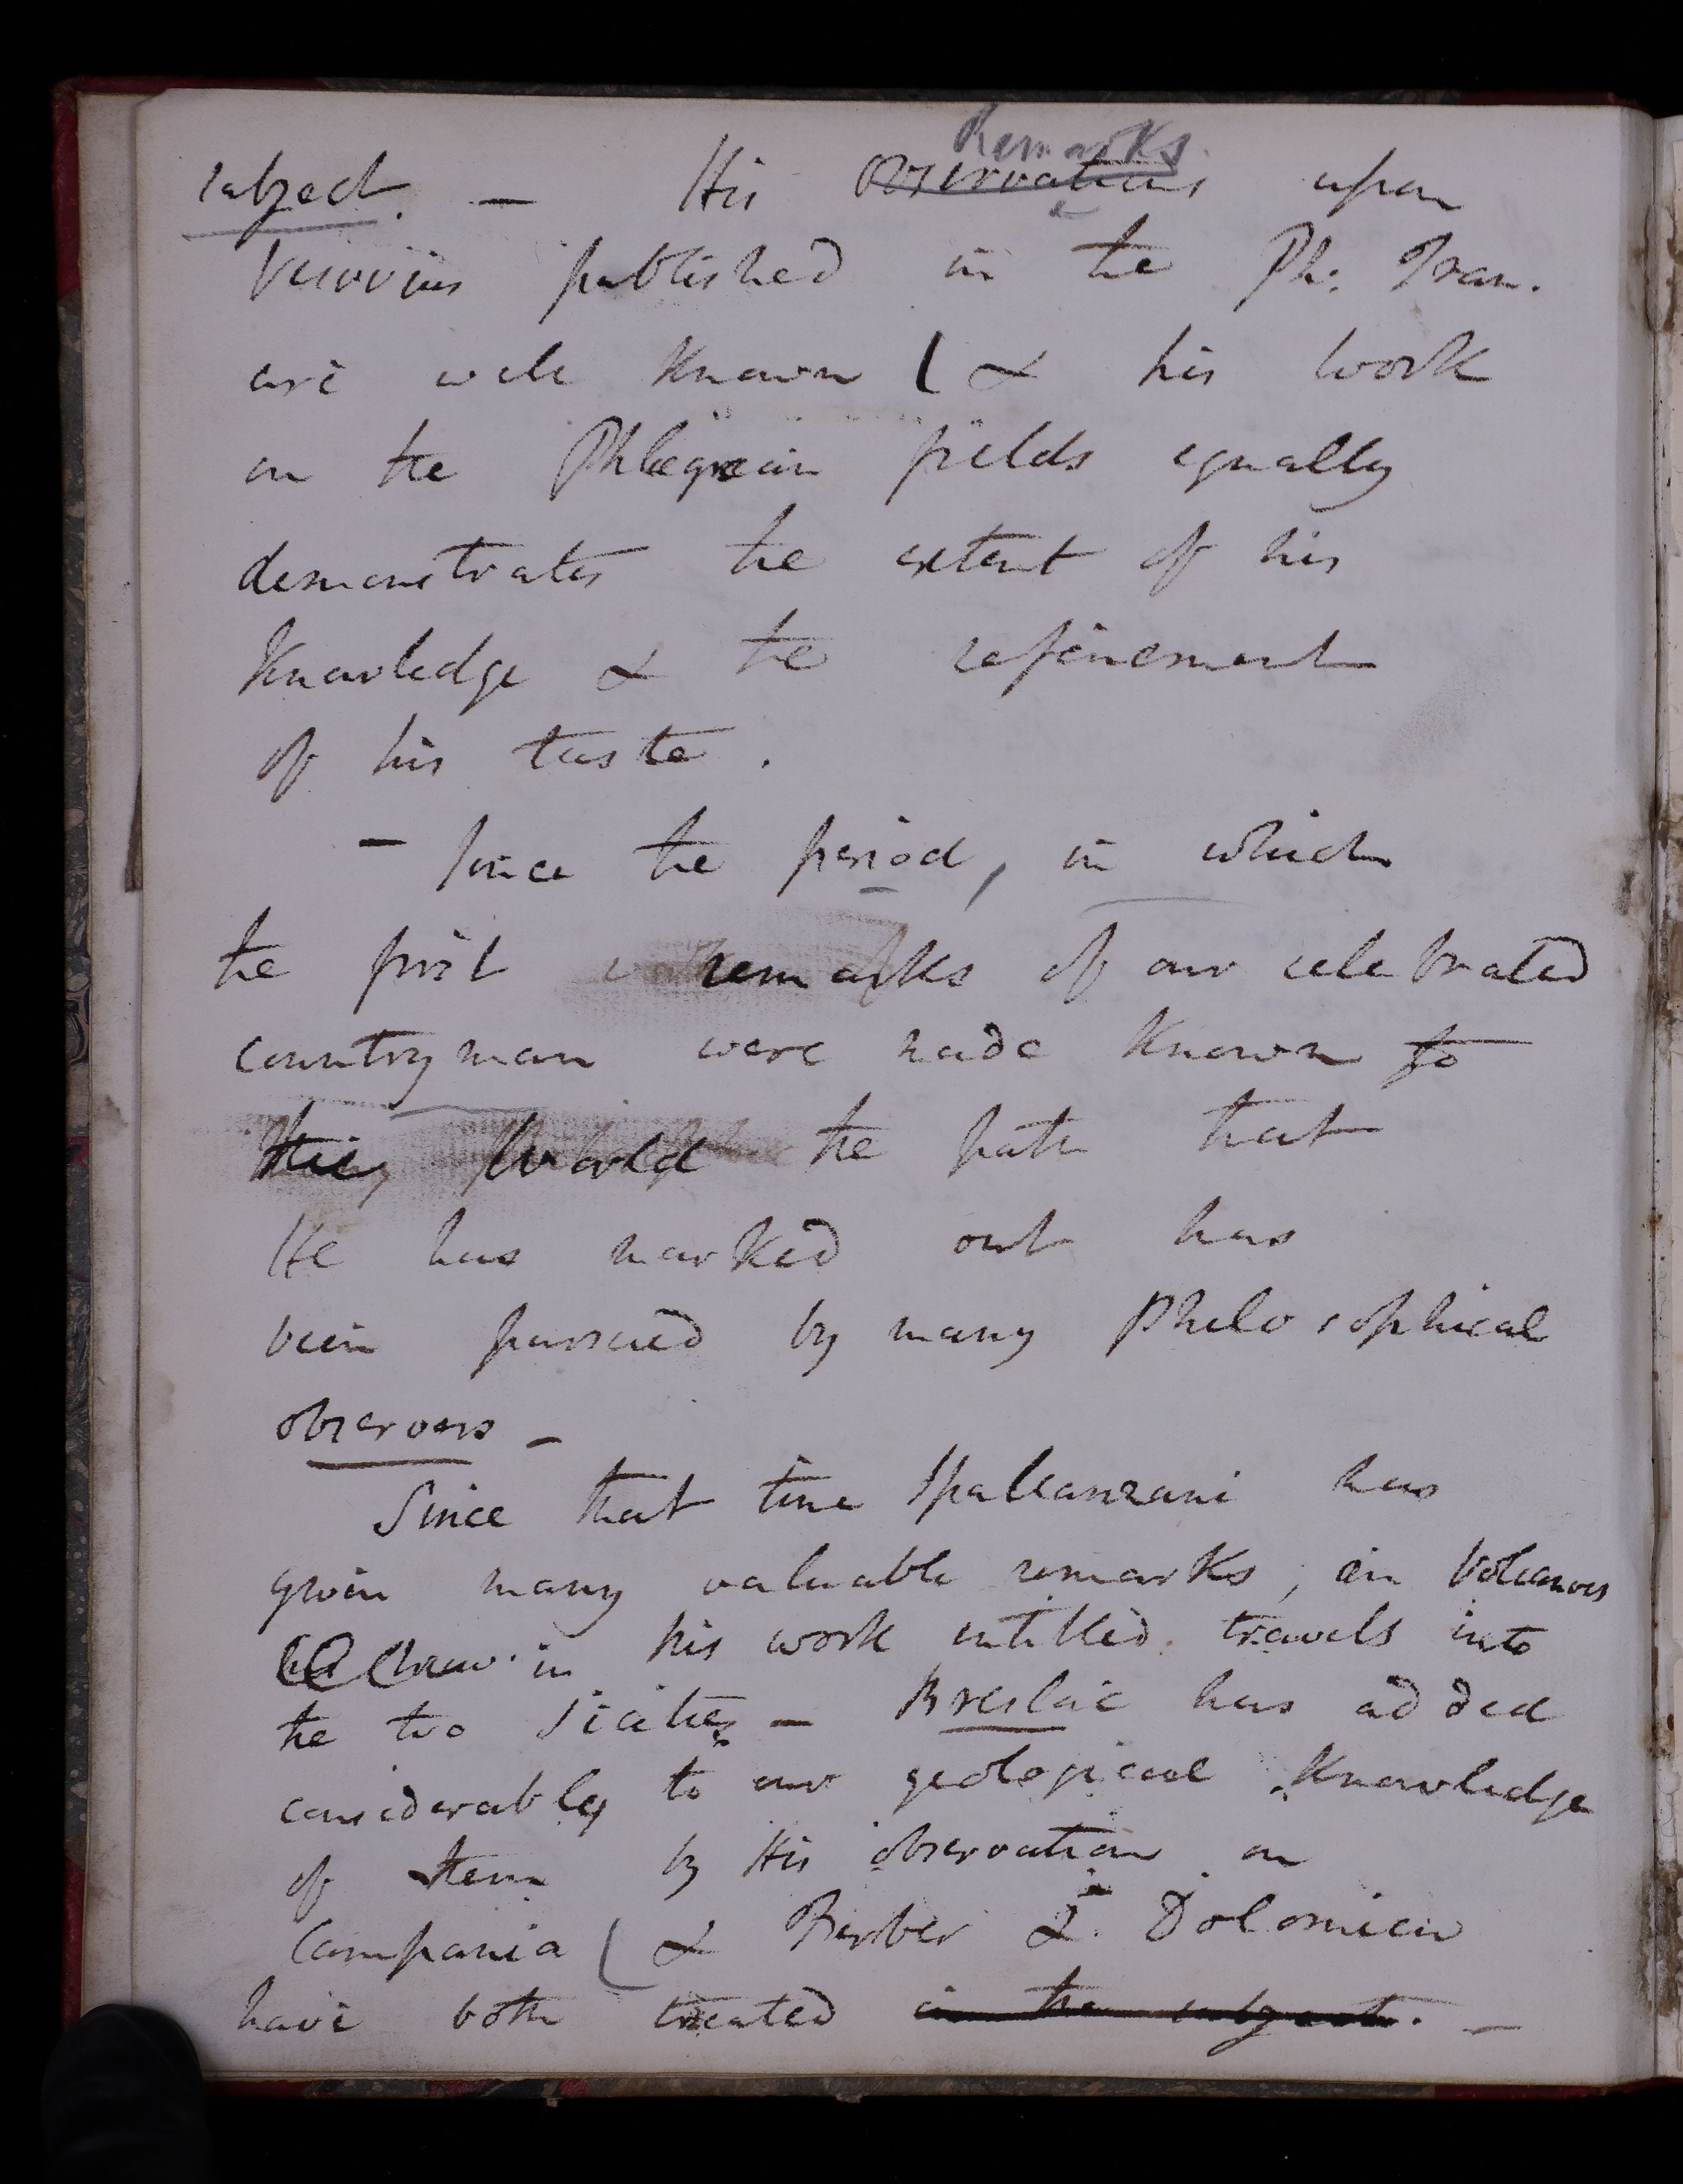 Remarks.
subject. — His observations upon
Vesuvius published in the Ph: Tran.
are well known ( & his work
on the Phlegræan fields equally
demonstrates the extent of his
Knowledge & the refinement
of his taste.
— since the period, in which
the first remarks of our celebrated
countryman were made known to
the World the path that
He has marked out has
been pursued by many Philosophical
observers —
Since that time Spallanzani has
given many valuable remarks, on Volcanoes
in his work intitled. travels into
the two Sicilies — Breslac has added
considerably to our geological Knowledge
of them by His observation on
Campania ( & Ferber & Dolomieu
have both treated in the subject. —